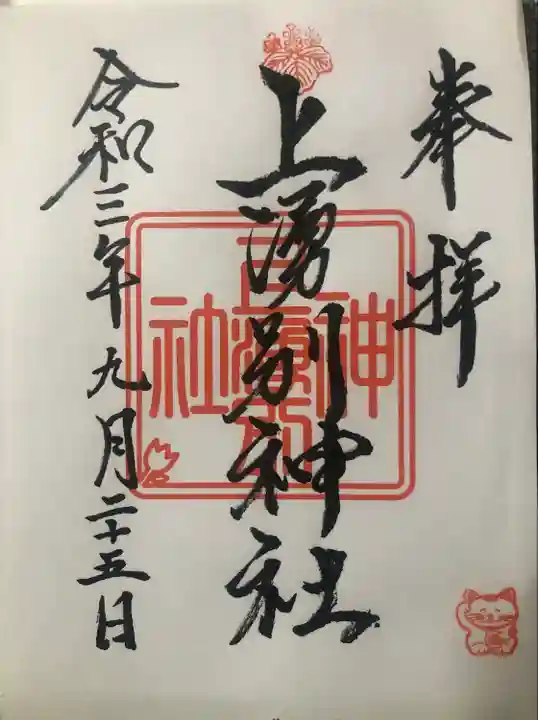 奉拝
上湧別神社
上湧別
神
社
令和三年九月二十五日